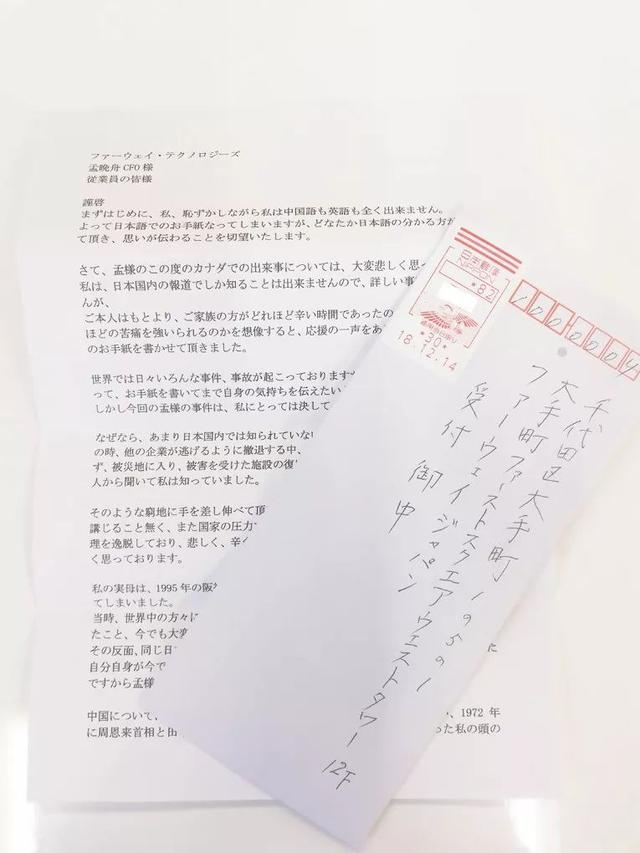 ファーウェイ・テクノロジーズ
孟晩舟 CFO 様
従業員の皆様
謹啓
まずはじめに、私、恥ずかしながら私は中国語も英語も全く出来ません。
よって日本語でのお手紙なってしまいますが、どなたか日本語の分かる方が
て頂き、思いが伝わることを切望いたします。
さて、孟様のこの度のカナダでの出来事については、大変悲しく思っ
私は、日本国内の報道でしか知ることは出来ませんので、詳しい事
んが、
ご本人はもとより、ご家族の方がどれほど辛い時間であったの
ほどの苦痛を強いられるのかを想像すると、応援の一声をあ
のお手紙を書かせて頂きました。
世界では日々いろんな事件、事故が起こっております
って、お手紙を書いてまで自身の気持ちを伝えたい
しかし今回の孟様の事件は、私にとっては決して
なぜなら、あまり日本国内では知られていない
の時、他の企業が逃げるように撤退する中、
ず、被災地に入り、被害を受けた施設の復
人から聞いて私は知っていました。
そのような窮地に手を差し伸べて頂
講じること無く、また国家の圧力
理を逸脱しており、悲しく、辛
く思っております。
私の実母は、1995 年の阪
てしまいました。
当時、世界中の方々に
たこと、今でも大変
その反面、同じ日
自分自身が今で
ですから孟様
中国について、
、1972 年
に周恩来首相と田
った私の頭の
日本郵便
NIPPON
*82
*30*
18.12.14
1000004
千代田区大手町1の5の1
大手町ファーストスクエアウェストタワー12F
ファーウェイジャパン
受付 御中